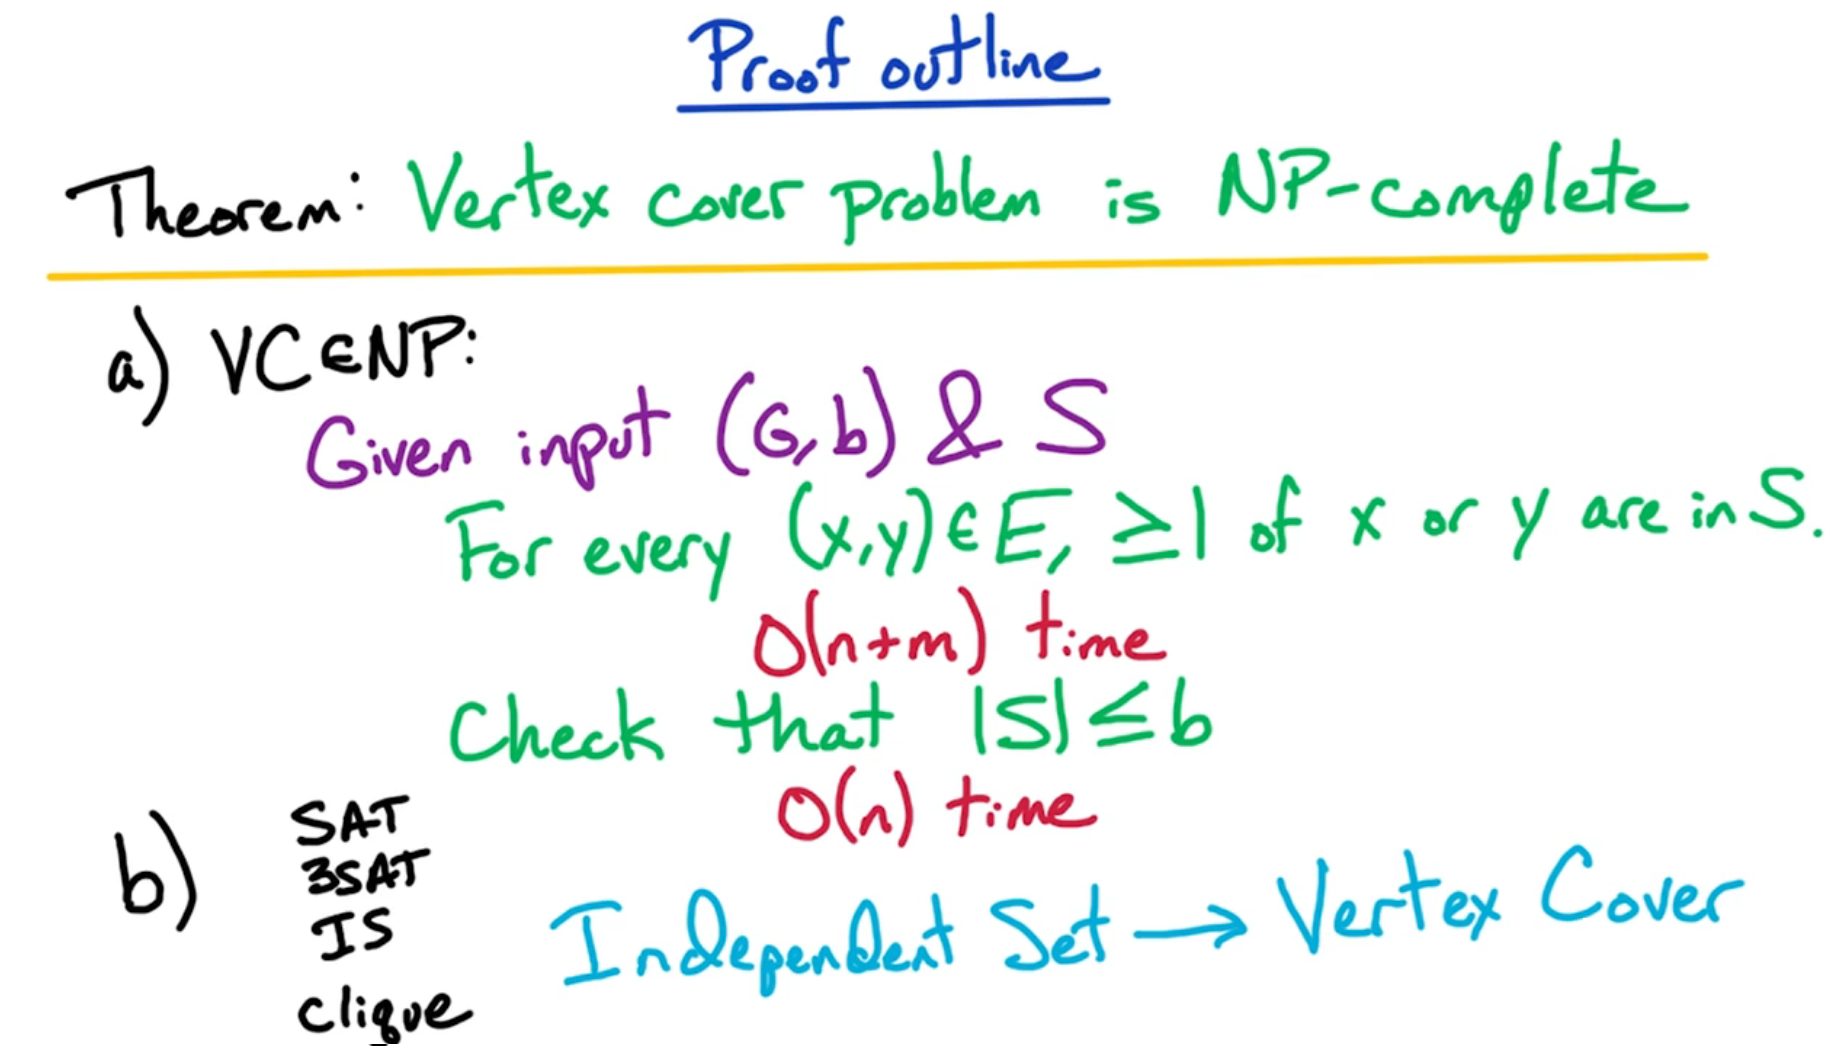 Proof outline
Theorem: Vertex cover problem is NP-complete
a) VC∈NP:
Given input (G,b) & S
For every (x,y)∈E, ≥1 of x or y are in S.
O(n+m) time
Check that |S|≤b
O(n) time
b)
SAT
3SAT
IS
Clique
Independent Set → Vertex Cover